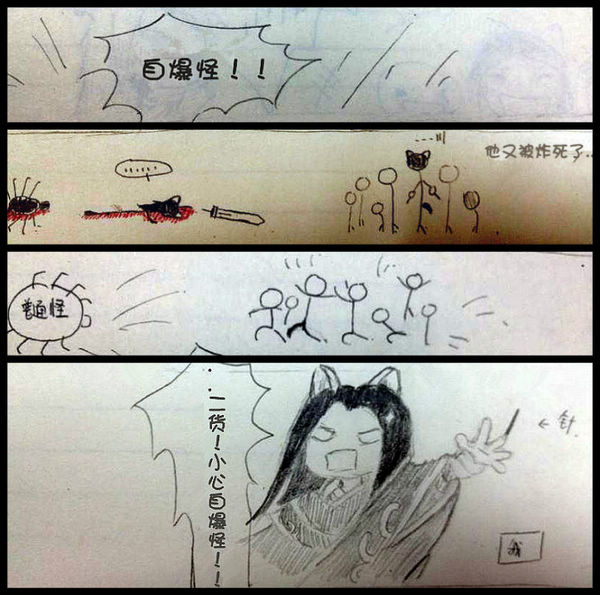 自爆怪！！
......
他又被炸死了..
普通怪
..二货！小心自爆怪！！
← 针
我